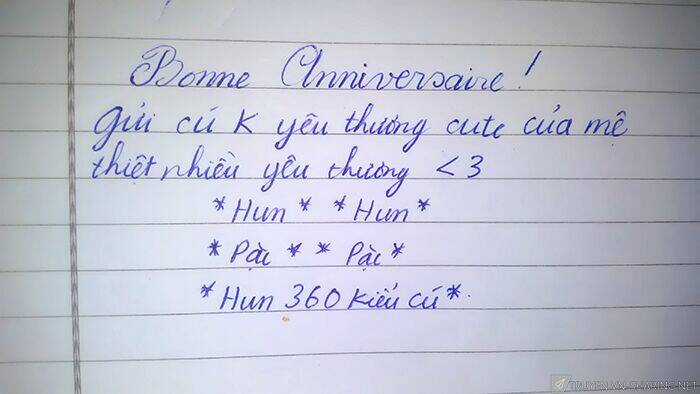 Bonne Anniversaire!
Gửi cú K yêu thương cute của mê
thiệt nhiều yêu thương <3
*Hun* *Hun*
*Pặc* *Pặc*
*Hun 360 kiểu cú*.
TRUYENFUN.SHARING.NET